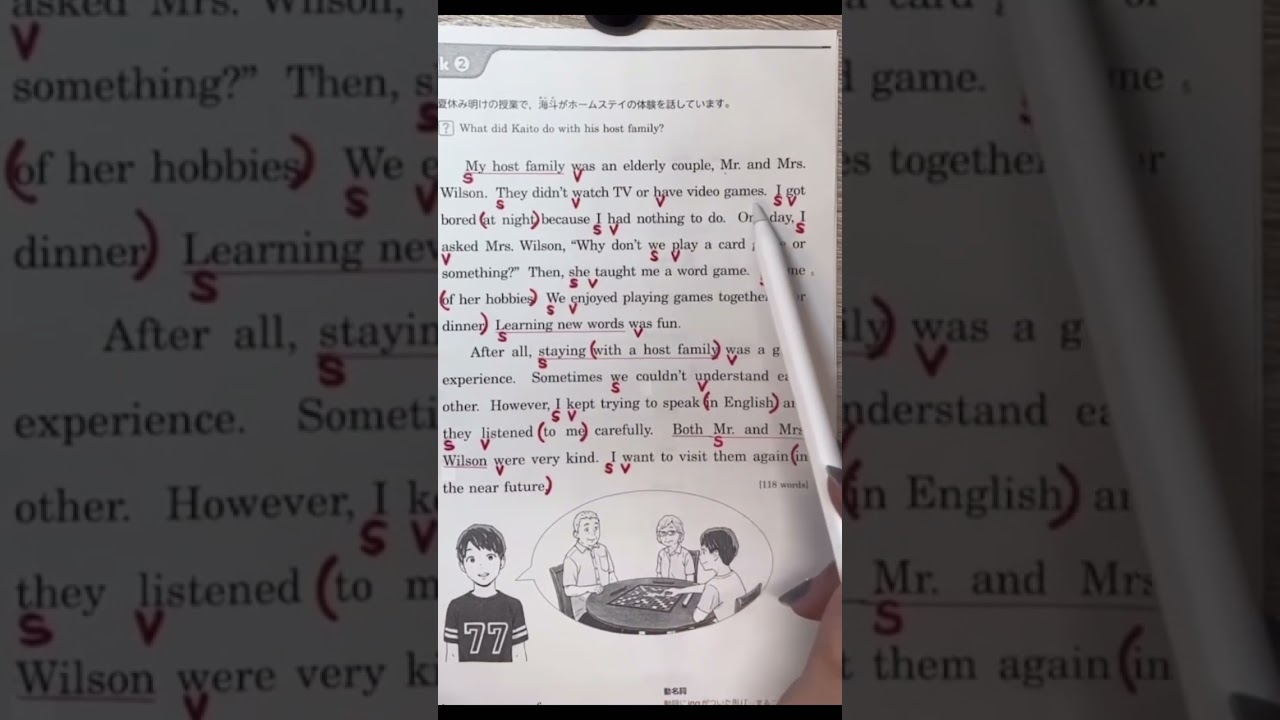 k 2
夏休み明けの授業で，海斗がホームステイの体験を話しています。
? What did Kaito do with his host family?
My host family was an elderly couple, Mr. and Mrs.
S V
Wilson. They didn't watch TV or have video games. I got
S V V S V
bored (at night) because I had nothing to do. day, I
S V S
asked Mrs. Wilson, "Why don't we play a card or
V S V
something?" Then, she taught me a word game.
S V
(of her hobbies) We enjoyed playing games
S V
dinner) Learning new words was fun.
S V
After all, staying (with a host family) was a
S V
experience. Sometimes we couldn't understand
S V
other. However, I kept trying to speak (in English)
S V
they listened (to me) carefully. Both Mr. and
S V S
Wilson were very kind. I want to visit them again (in
V S V
the near future.)
[118 words]
77
動名詞